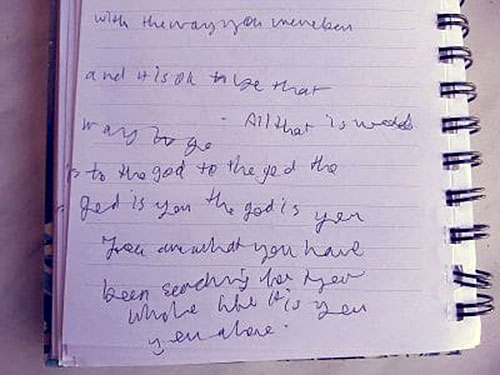 with the way you
and it is ok to be that
way to go - All that is needed
is to the god to the god the
god is you the god is you
You are what you have
been searching for your
whole life it is you
you alone.